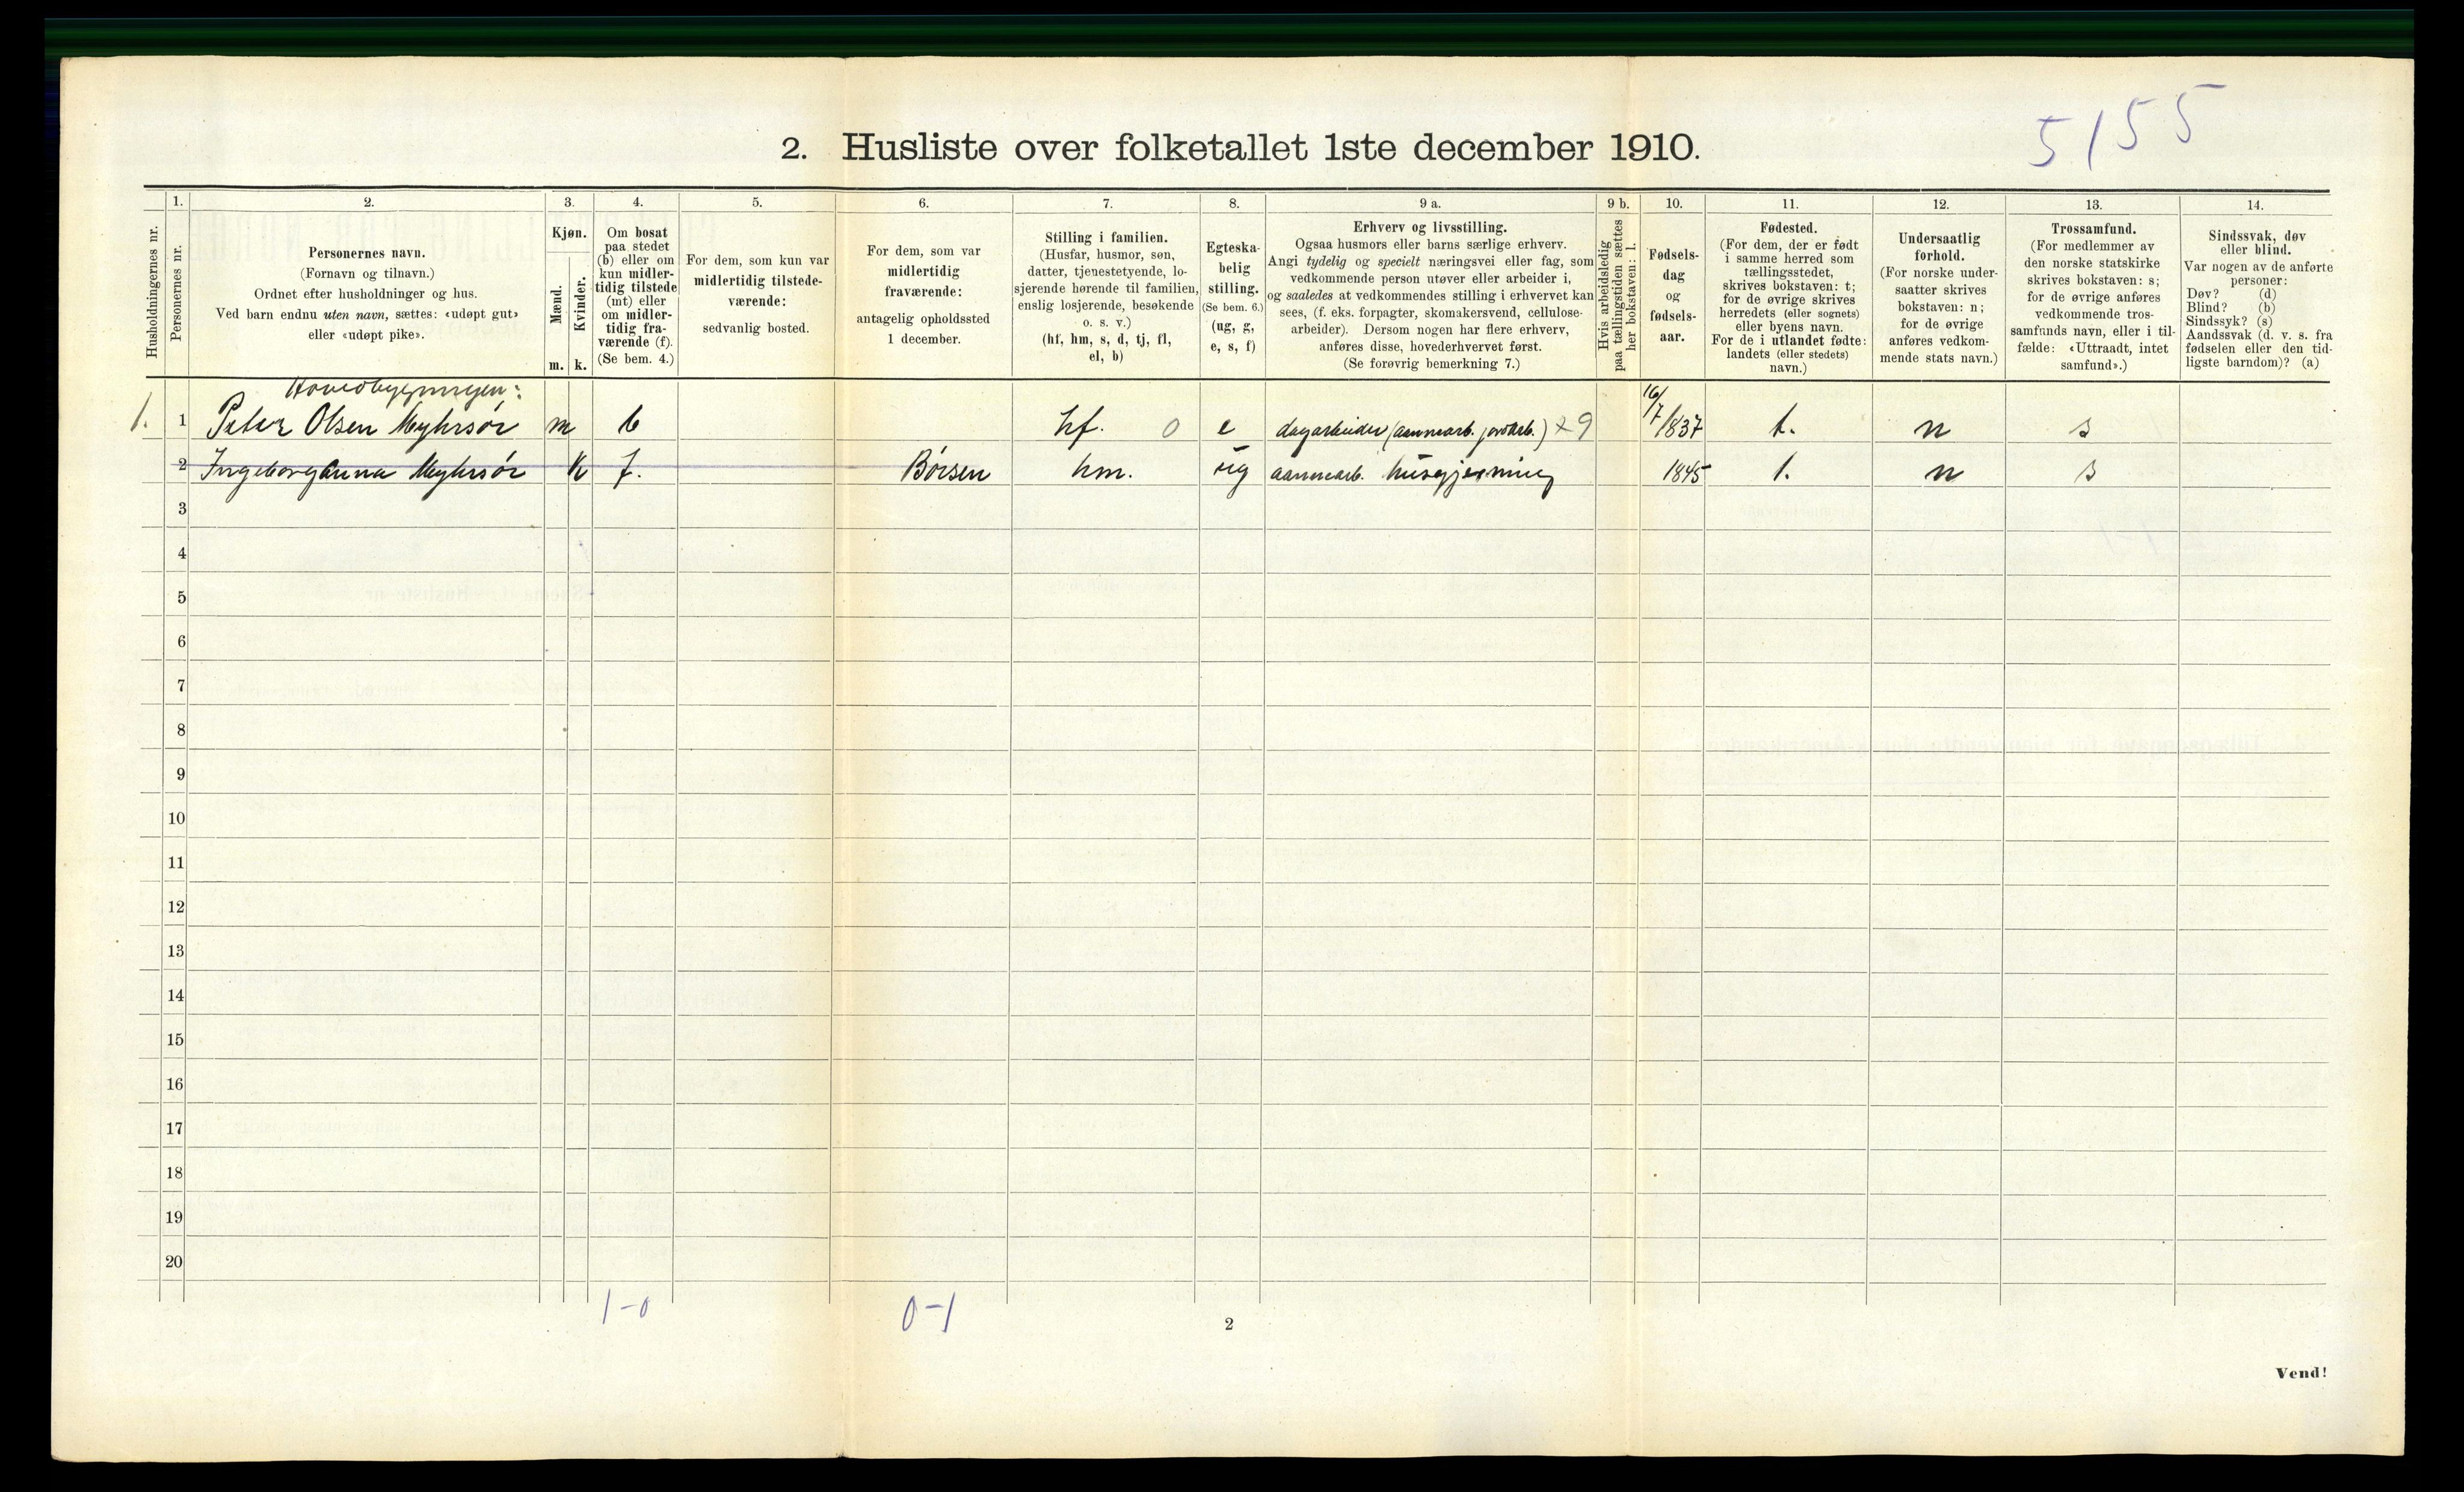 5155
2. Husliste over folketallet 1ste december 1910.
Husholdningernes nr.
1.
Personernes nr.
2.
Personernes navn.
(Fornavn og tilnavn.)
Ordnet efter husholdninger og hus.
Ved barn endnu uten navn, sættes: «udøpt gut»
eller «udøpt pike».
3.
Kjøn.
Mænd.
Kvinder.
m. k.
4.
Om bosat
paa stedet
(b) eller om
kun midler-
tidig tilstede
(mt) eller
om midler-
tidig fra-
værende (f).
(Se bem. 4.)
5.
For dem, som kun var
midlertidig tilstede-
værende:
sedvanlig bosted.
6.
For dem, som var
midlertidig
fraværende:
antagelig opholdssted
1 december.
7.
Stilling i familien.
(Husfar, husmor, søn,
datter, tjenestetyende, lo-
sjerende hørende til familien,
enslig losjerende, besøkende
o. s. v.)
(hf, hm, s, d, tj, fl,
el, b)
8.
Egteska-
belig
stilling.
(Se bem. 6.)
(ug, g,
e, s, f)
9 a.
Erhverv og livsstilling.
Ogsaa husmors eller barns særlige erhverv.
Angi tydelig og specielt næringsvei eller fag, som
vedkommende person utøver eller arbeider i,
og saaledes at vedkommendes stilling i erhvervet kan
sees, (f. eks. forpagter, skomakersvend, cellulose-
arbeider). Dersom nogen har flere erhverv,
anføres disse, hovederhvervet først.
(Se forøvrig bemerkning 7.)
9 b.
Hvis arbeidsledig
paa tællingstiden sættes
her bokstaven: l.
10.
Fødsels-
dag
og
fødsels-
aar.
11.
Fødested.
(For dem, der er født
i samme herred som
tællingsstedet,
skrives bokstaven: t;
for de øvrige skrives
herredets (eller sognets)
eller byens navn.
For de i utlandet fødte:
landets (eller stedets)
navn.)
12.
Undersaatlig
forhold.
(For norske under-
saatter skrives
bokstaven: n;
for de øvrige
anføres vedkom-
mende stats navn.)
13.
Trossamfund.
(For medlemmer av
den norske statskirke
skrives bokstaven: s;
for de øvrige anføres
vedkommende tros-
samfunds navn, eller i til-
fælde: «Uttraadt, intet
samfund».)
14.
Sindssvak, døv
eller blind.
Var nogen av de anførte
personer:
Døv? (d)
Blind? (b)
Sindssyk? (s)
Aandssvak (d. v. s. fra
fødselen eller den tid-
ligste barndom)? (a)
Hovedbygningen:
1. 1 Peter Olsen Myhrsør m b hf. 0 e dagarbeider 29 16/7 1837 t. n s
2 Ingeborg Anna Myhrsør k f. Börsen hm. ug husgjerning 1845 t. n s
3
4
5
6
7
8
9
10
11
12
13
14
15
16
17
18
19
20
1-0 0-1
2
Vend!